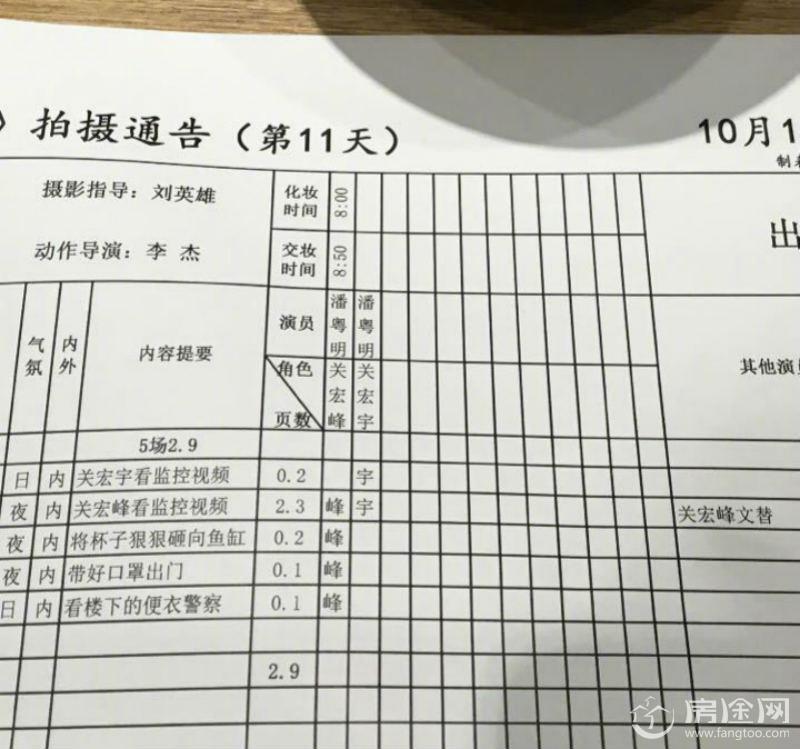 》拍摄通告（第11天）
10月1
制
摄影指导：刘英雄
化妆时间
8:00
出
动作导演：李 杰
交妆时间
8:50
气氛
内外
内容提要
演员
潘粤明
潘粤明
其他演员
角色
页数
关宏峰
关宏宇
5场2.9
日 内 关宏宇看监控视频 0.2 宇
夜 内 关宏峰看监控视频 2.3 峰 宇 关宏峰文替
夜 内 将杯子狠狠砸向鱼缸 0.2 峰
夜 内 带好口罩出门 0.1 峰
日 内 看楼下的便衣警察 0.1 峰
2.9
房途网
www.fangtoo.com